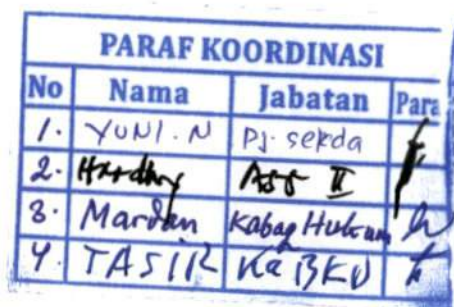 PARAF KOORDINASI
No Nama Jabatan Para
1. YUNI. N Pj. sekda
2. Hardy Ass II
3. Mardan Kabag Hukum
4. TASIR Ka BKD